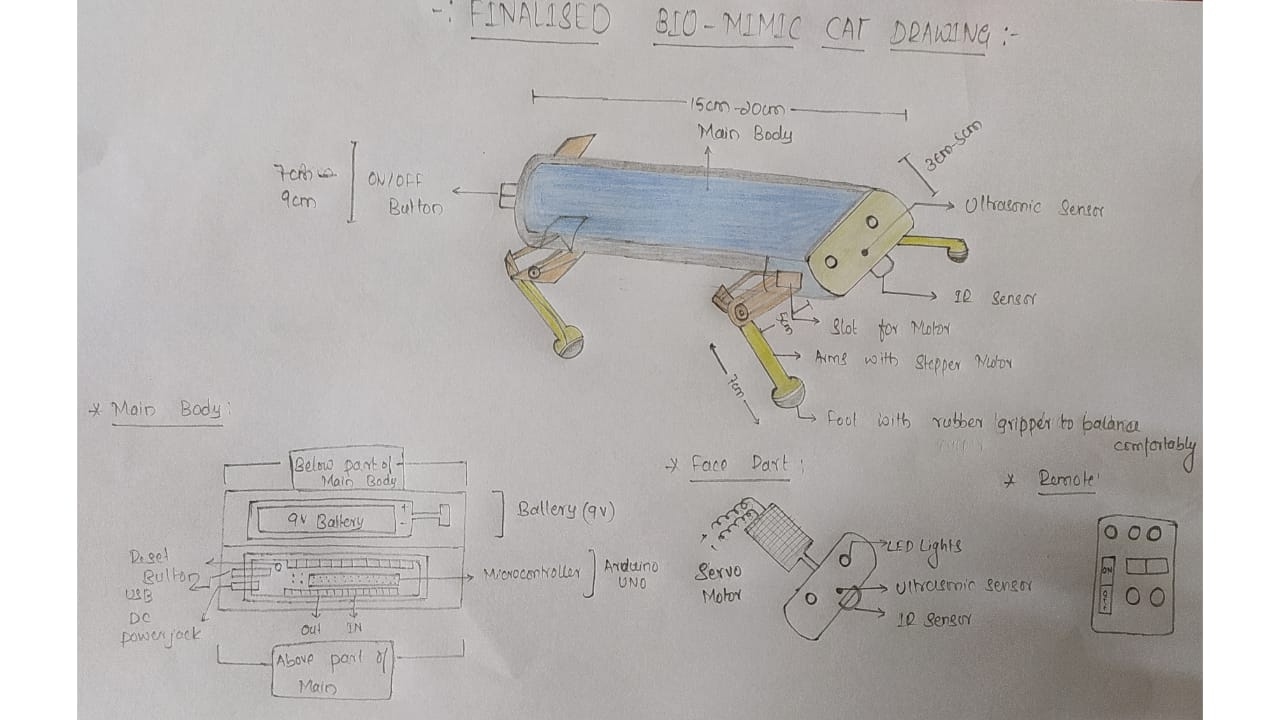 -: FINALISED BIO-MIMIC CAT DRAWING :-
15cm-20cm
Main Body
3cm-5cm
7cm
9cm
ON/OFF
Button
Ultrasonic Sensor
IR Sensor
Slot for Motor
Arms with Stepper Motor
7cm
Foot with rubber gripper to balance
comfortably
* Main Body:
Below part of
Main Body
9v Battery
+
-
Battery (9v)
Reset
Button
USB
DC
powerjack
Microcontroller
Arduino
UNO
Out IN
Above part of
Main
* Face Part:
Servo
Motor
LED Lights
Ultrasonic Sensor
IR Sensor
* Remote:
ON